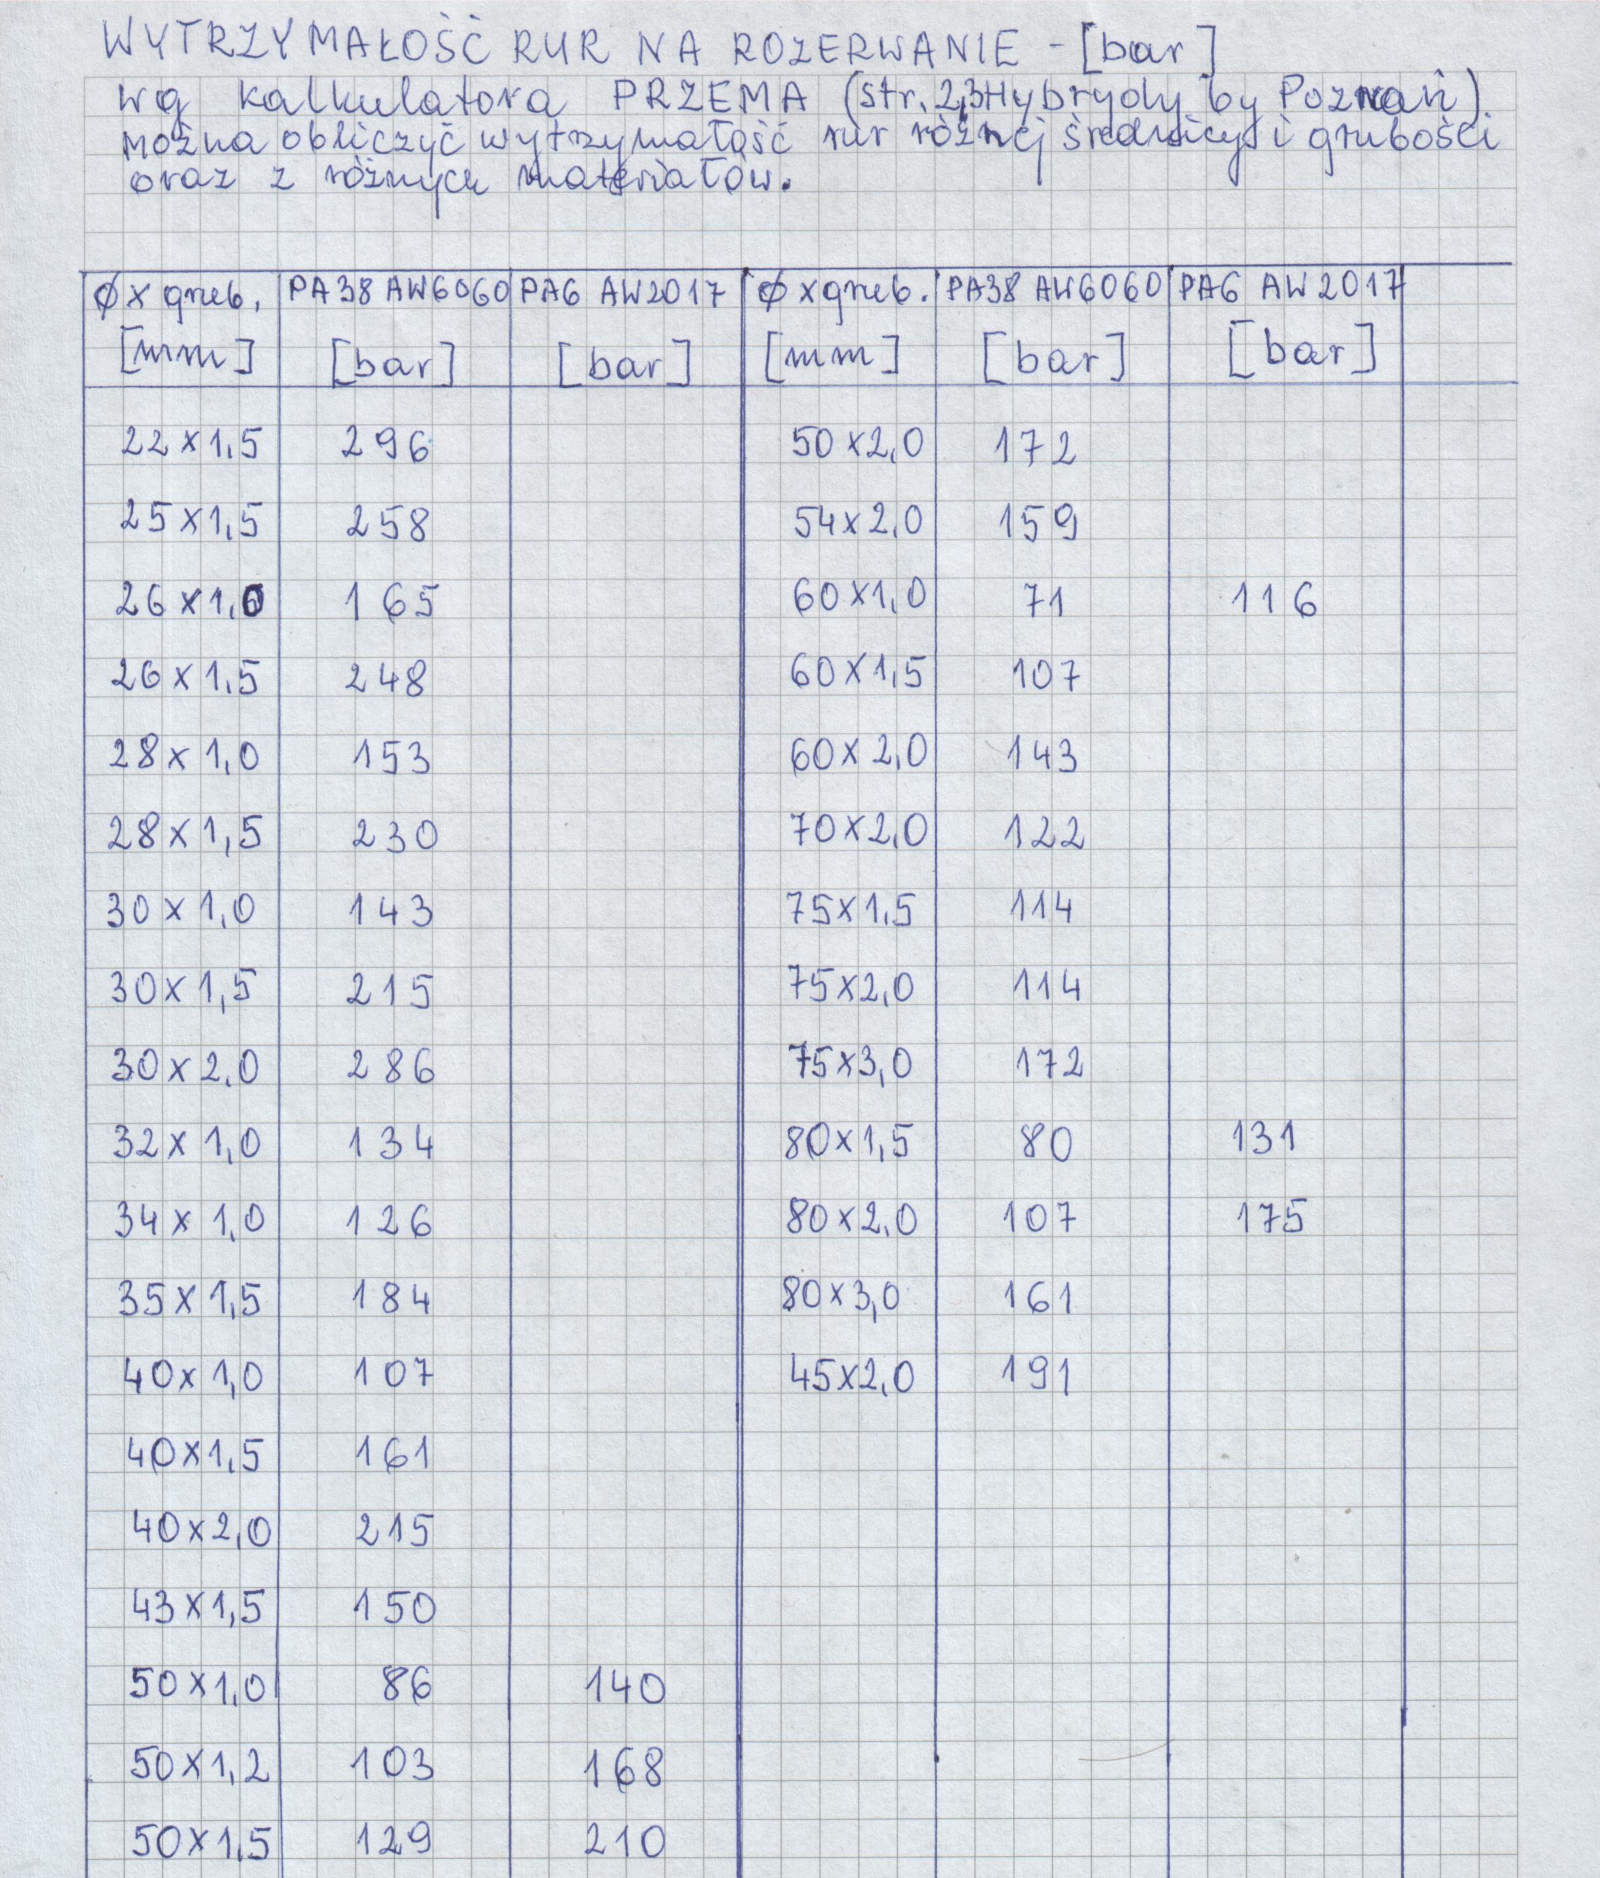 WYTRZYMAŁOŚĆ RUR NA ROZERWANIE - [bar]
wg kalkulatora PRZEMA (str. 2,3 Hybrydy by Poznań)
można obliczyć wytrzymałość rur różnej średnicy i grubości
oraz z różnych materiałów.
Ø x grub. PA38 AW6060 PA6 AW2017 Ø x grub. PA38 AW6060 PA6 AW2017
[mm] [bar] [bar] [mm] [bar] [bar]
22 x 1,5 296 50 x 2,0 172
25 x 1,5 258 54 x 2,0 159
26 x 1,0 165 60 x 1,0 71 116
26 x 1,5 248 60 x 1,5 107
28 x 1,0 153 60 x 2,0 143
28 x 1,5 230 70 x 2,0 122
30 x 1,0 143 75 x 1,5 114
30 x 1,5 215 75 x 2,0 114
30 x 2,0 286 75 x 3,0 172
32 x 1,0 134 80 x 1,5 80 131
34 x 1,0 126 80 x 2,0 107 175
35 x 1,5 184 80 x 3,0 161
40 x 1,0 107 45 x 2,0 191
40 x 1,5 161
40 x 2,0 215
43 x 1,5 150
50 x 1,0 86 140
50 x 1,2 103 168
50 x 1,5 129 210